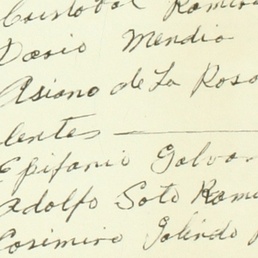 Cristobal Ramire
Dario Mendia
Asiano de La Rosa
lentes —
Epifanio Galvan
Adolfo Soto Rami
Casimiro Galindo